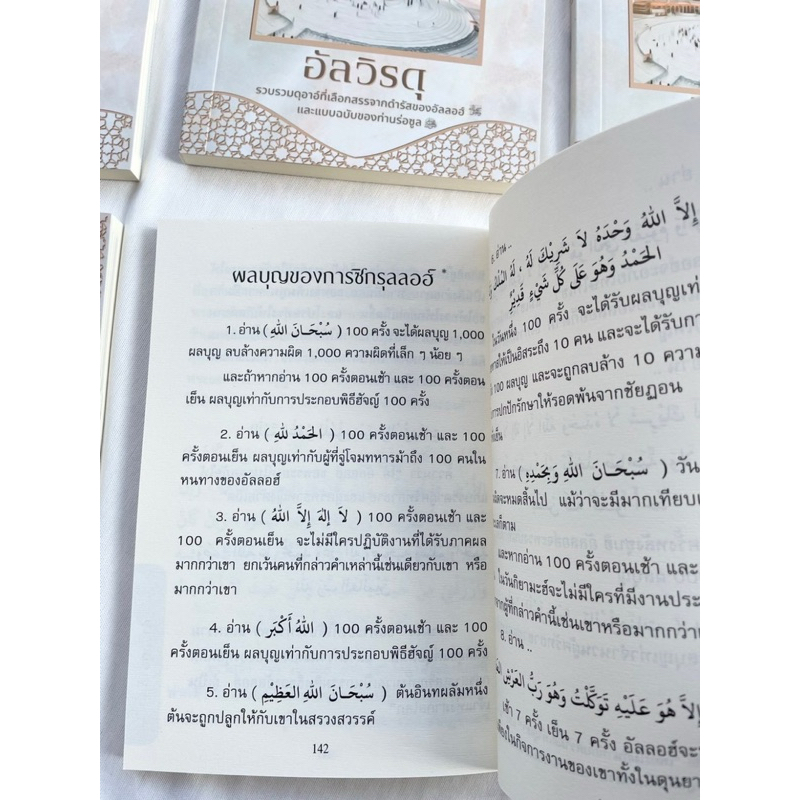 อัลวิรดุ
รวบรวมดุอาอ์ที่เลือกสรรจากดำรัสของอัลลอฮ์ ﷻ
และแบบฉบับของท่านร่อซูล ﷺ
ผลบุญของการซิกรุลลอฮ์ *
1. อ่าน ( سُبْحَانَ اللهِ ) 100 ครั้ง จะได้ผลบุญ 1,000
ผลบุญ ลบล้างความผิด 1,000 ความผิดที่เล็ก ๆ น้อย ๆ
และถ้าหากอ่าน 100 ครั้งตอนเช้า และ 100 ครั้งตอน
เย็น ผลบุญเท่ากับการประกอบพิธีฮัจญ์ 100 ครั้ง
2. อ่าน ( الحَمْدُ للهِ ) 100 ครั้งตอนเช้า และ 100
ครั้งตอนเย็น ผลบุญเท่ากับผู้ที่จู่โจมทหารม้าถึง 100 คนใน
หนทางของอัลลอฮ์
3. อ่าน ( لاَ إِلهَ إِلاَّ اللهُ ) 100 ครั้งตอนเช้า และ
100 ครั้งตอนเย็น จะไม่มีใครปฏิบัติงานที่ได้รับภาคผล
มากกว่าเขา ยกเว้นคนที่กล่าวคำเหล่านี้เช่นเดียวกับเขา หรือ
มากกว่าเขา
4. อ่าน ( اللهُ أَكْبَر ) 100 ครั้งตอนเช้า และ 100
ครั้งตอนเย็น ผลบุญเท่ากับการประกอบพิธีฮัจญ์ 100 ครั้ง
5. อ่าน ( سُبْحَانَ اللهِ العَظِيْمِ ) ต้นอินทผลัมหนึ่ง
ต้นจะถูกปลูกให้กับเขาในสรวงสวรรค์
142
6. อ่าน ..
إِلاَّ اللهُ وَحْدَهُ لاَ شَرِيْكَ لَهُ ، لَهُ المُلْكُ
الحَمْدُ وَهُوَ عَلَى كُلِّ شَيْءٍ قَدِيْرٌ
ในวันหนึ่ง 100 ครั้ง จะได้รับผลบุญเท่า
ให้เป็นอิสระถึง 10 คน และจะได้รับกา
100 ผลบุญ และจะถูกลบล้าง 10 ความ
การปกปักรักษาให้รอดพ้นจากชัยฏอน
7. อ่าน ( سُبْحَانَ اللهِ وَبِحَمْدِهِ ) วัน
จะหมดสิ้นไป แม้ว่าจะมีมากเทียบเ
ก็ตาม
และหากอ่าน 100 ครั้งตอนเช้า และ
ในวันกิยามะฮ์จะไม่มีใครที่มีงานประ
จากผู้ที่กล่าวคำนี้เช่นเขาหรือมากกว่าเ
8. อ่าน ..
إِلاَّ هُوَ عَلَيْهِ تَوَكَّلْتُ وَهُوَ رَبُّ العَرْشِ
เช้า 7 ครั้ง เย็น 7 ครั้ง อัลลอฮ์จะ
ในกิจการงานของเขาทั้งในดุนยา